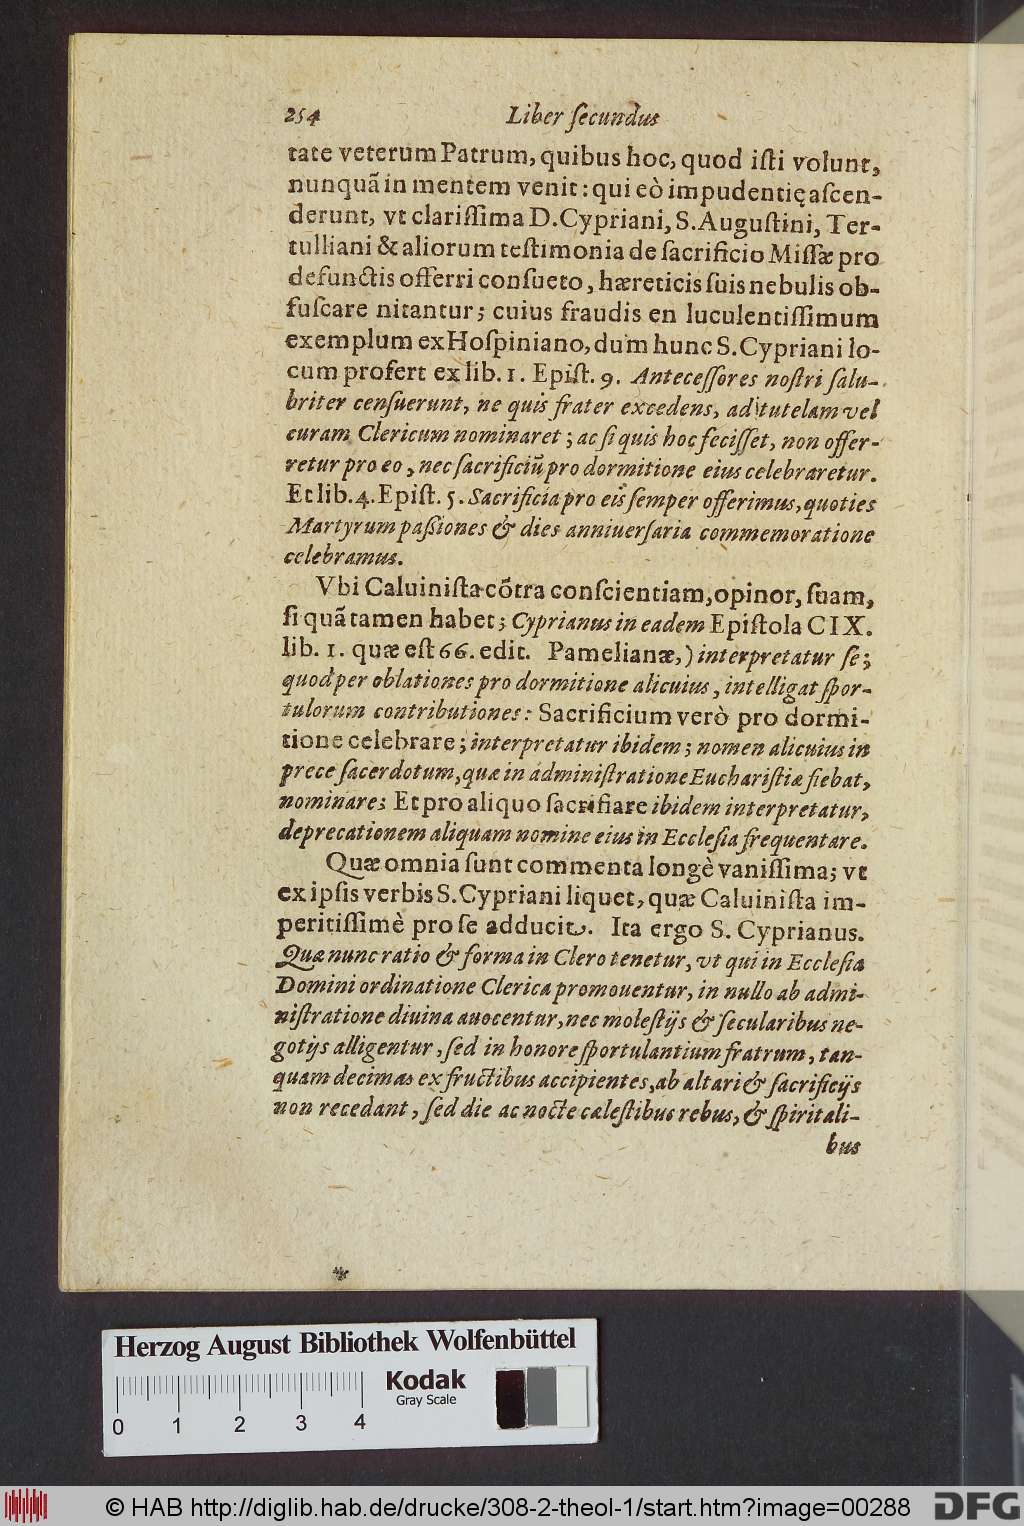 254 Liber ſecundus
tate veterum Patrum, quibus hoc, quod iſti volunt,
nunquã in mentem venit: qui eò impudentię aſcen-
derunt, vt clariſſima D. Cypriani, S. Auguſtini, Ter-
tulliani & aliorum teſtimonia de ſacrificio Miſſæ pro
defunctis offerri conſueto, hæreticis ſuis nebulis ob-
fuſcare nitantur; cuius fraudis en luculentiſſimum
exemplum ex Hoſpiniano, dum hunc S. Cypriani lo-
cum profert ex lib. 1. Epiſt. 9. Anteceſſores noſtri ſalu-
briter cenſuerunt, ne quis frater excedens, ad tutelam vel
curam Clericum nominaret; ac ſi quis hoc feciſſet, non offer-
retur pro eo, nec ſacrificiũ pro dormitione eius celebraretur.
Et lib. 4. Epiſt. 5. Sacrificia pro eis ſemper offerimus, quoties
Martyrum paßiones & dies anniuerſaria commemoratione
celebramus.
Vbi Caluiniſta cõtra conſcientiam, opinor, ſuam,
ſi quã tamen habet; Cyprianus in eadem Epiſtola CIX.
lib. 1. quæ eſt 66. edit. Pamelianæ,) interpretatur ſe;
quod per oblationes pro dormitione alicuius, intelligat ſpor-
tulorum contributiones: Sacrificium verò pro dormi-
tione celebrare; interpretatur ibidem; nomen alicuius in
prece ſacerdotum, quæ in adminiſtratione Euchariſtiæ fiebat,
nominare; Et pro aliquo ſacrifiare ibidem interpretatur,
deprecationem aliquam nomine eius in Eccleſia frequentare.
Quæ omnia ſunt commenta longè vaniſſima; vt
ex ipſis verbis S. Cypriani liquet, quæ Caluiniſta im-
peritiſſimè pro ſe adducit. Ita ergo S. Cyprianus.
Quæ nunc ratio & forma in Clero tenetur, vt qui in Eccleſia
Domini ordinatione Clerica promouentur, in nullo ab admi-
niſtratione diuina auocentur, nec moleſtijs & ſecularibus ne-
gotijs alligentur, ſed in honore ſportulantium fratrum, tan-
quam decimas ex fructibus accipientes, ab altari & ſacrificijs
non recedant, ſed die ac nocte cæleſtibus rebus, & ſpiritali-
bus
Herzog August Bibliothek Wolfenbüttel
Kodak
Gray Scale
0 1 2 3 4
© HAB http://diglib.hab.de/drucke/308-2-theol-1/start.htm?image=00288 DFG